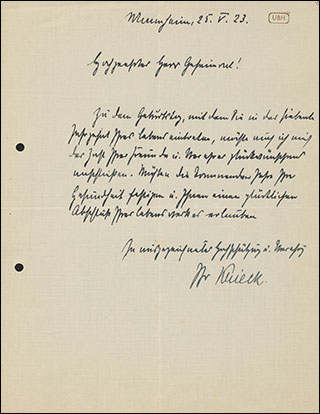 Mannheim, 25. V. 23.
UBH
Hochgeehrter Herr Geheimrat!
Zu dem Geburtstag, mit dem Sie in das siebente
Jahrzehnt Ihres Lebens eintreten, möchte auch ich mich
der Zahl Ihrer Freunde u. Verehrer glückwünschend
anschließen. Möchten die kommenden Jahre Ihre
Gesundheit festigen u. Ihnen einen glücklichen
Abschluß Ihres Lebenswerkes erlauben
In ausgezeichneter Hochschätzung u. Verehrg
Ihr